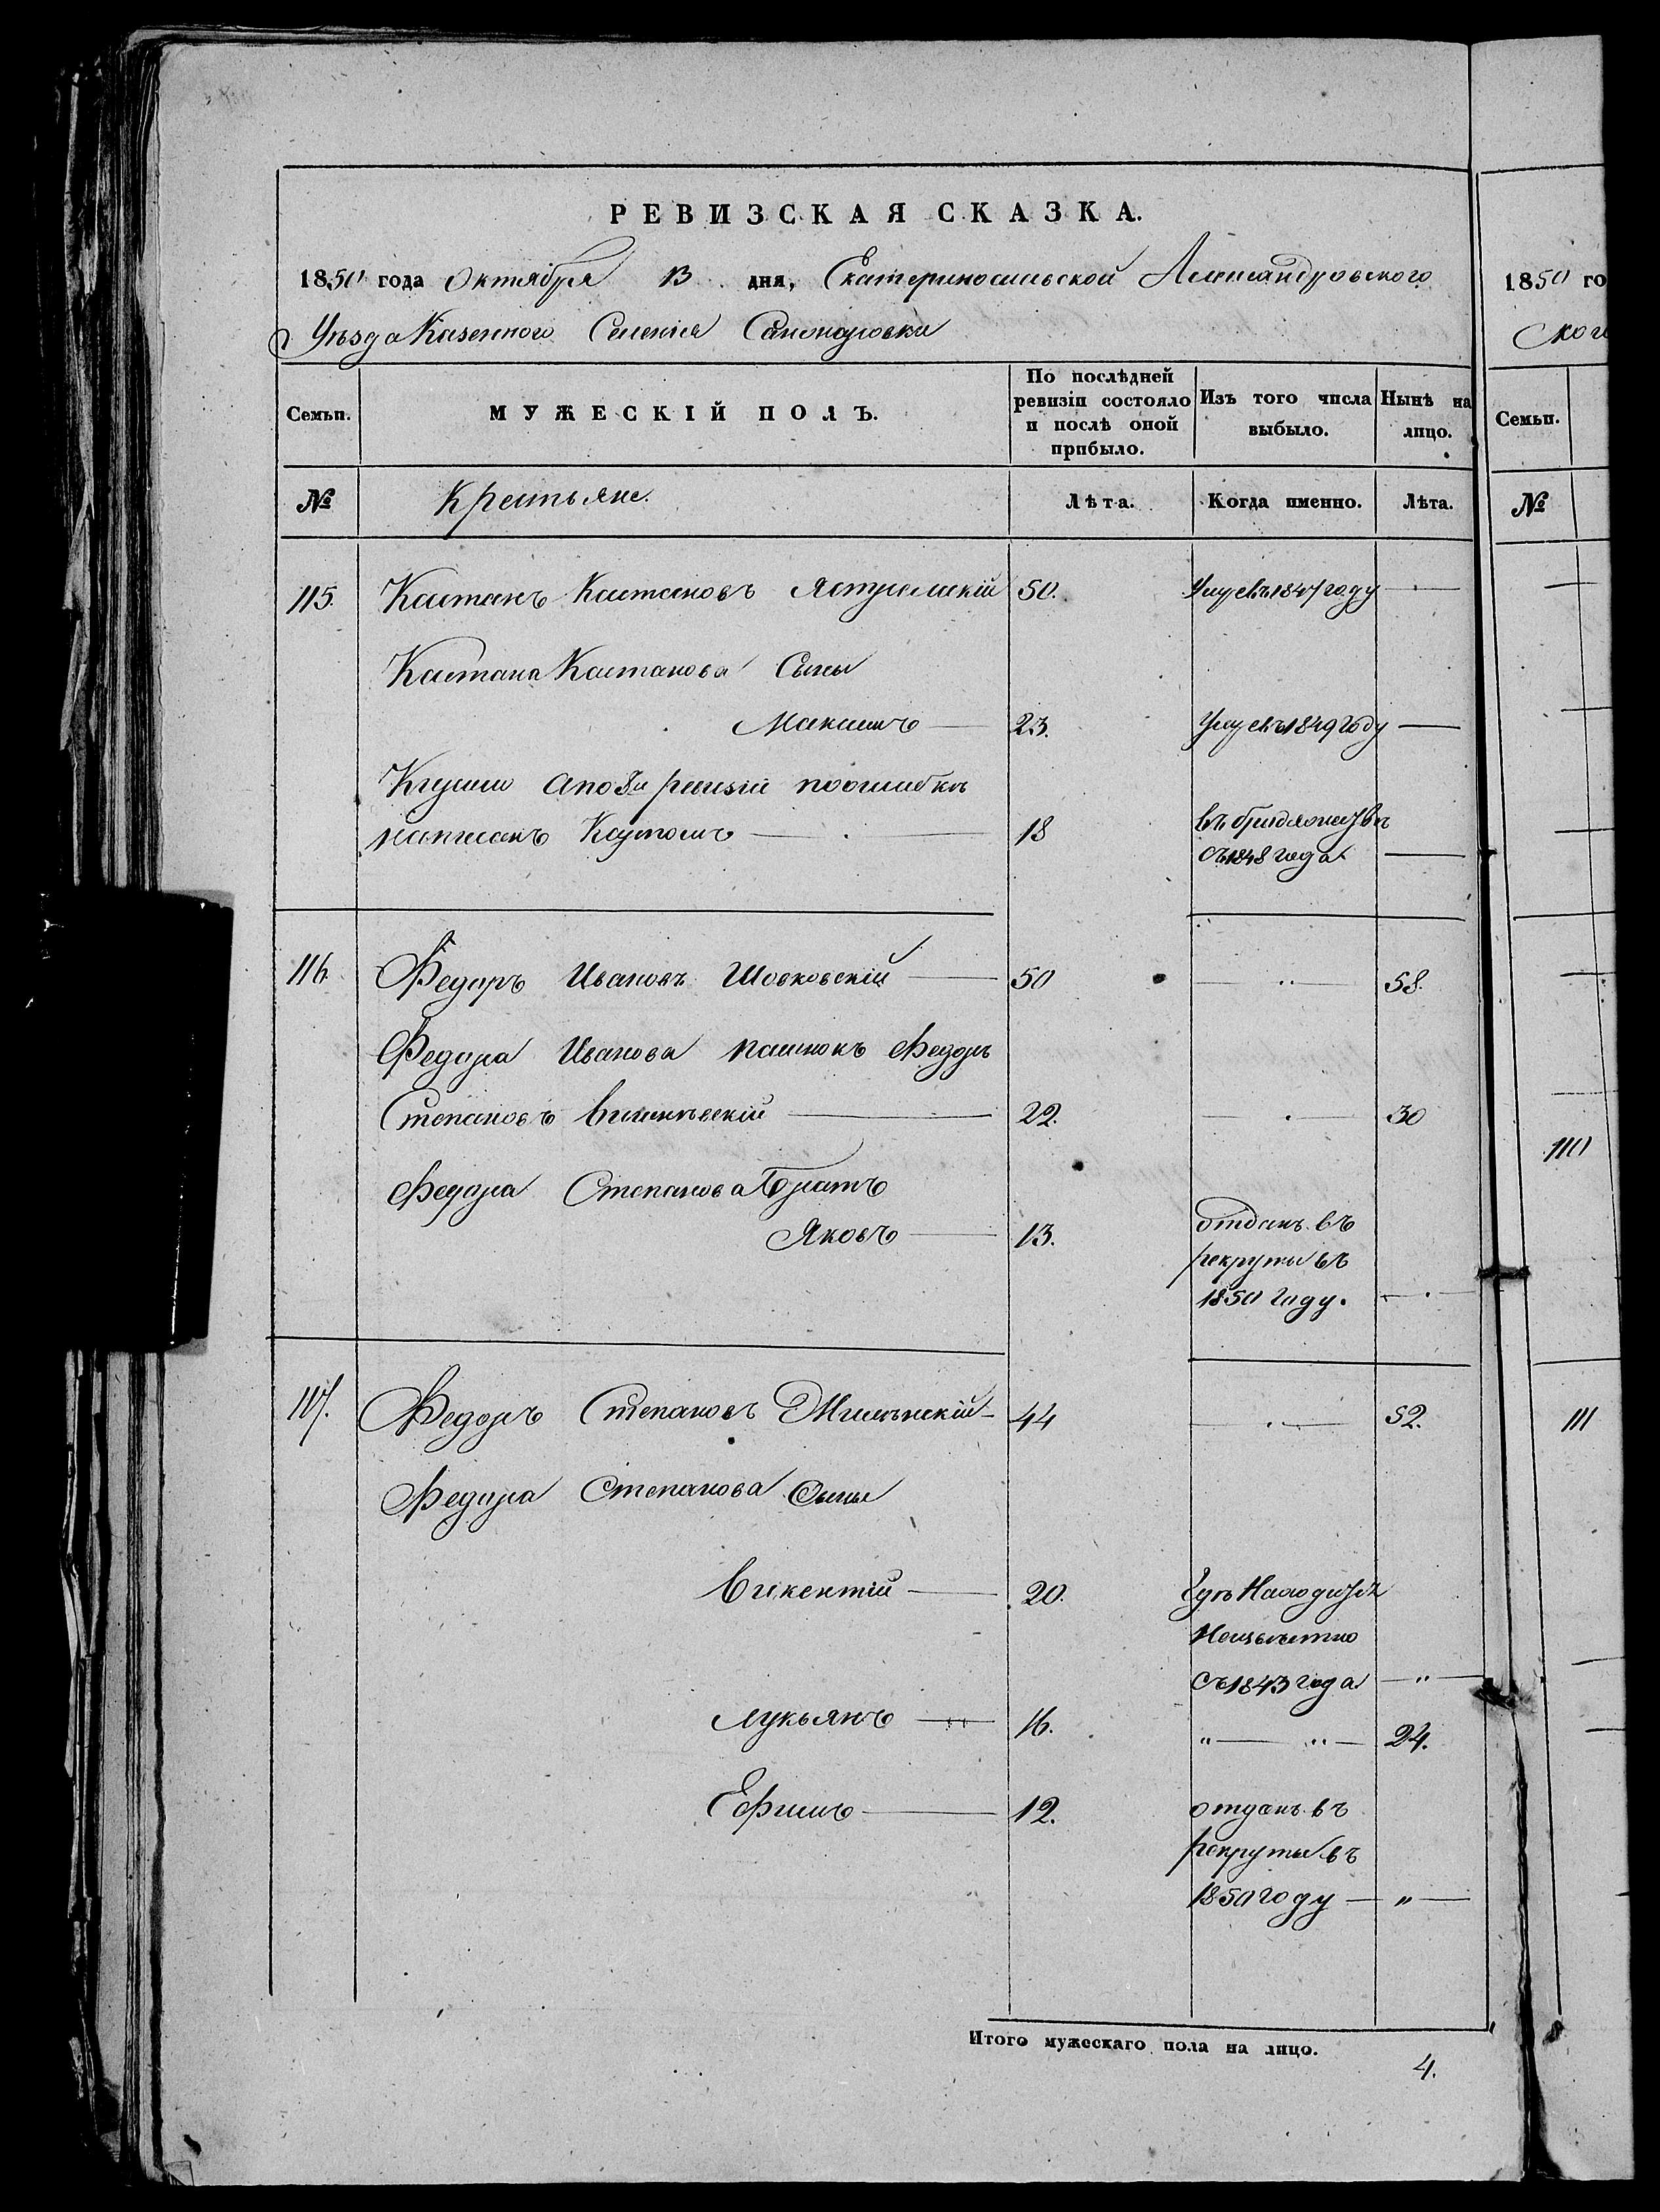 РЕВИЗСКАЯ СКАЗКА.
1850 года Октября 13 дня, Екатериносльской Александровского
Уѣзда Казенного Селенія
Семьи. МУЖЕСКІЙ ПОЛЪ. По послѣдней ревизіи состояло и послѣ оной прибыло. Изъ того числа выбыло. Нынѣ на лицо.
№ Крестьяне. Лѣта. Когда именно. Лѣта.
115. Каетанъ Каетановъ 50. Умре въ 1847 году
Каетана Каетанова Сыны
Максимъ 23. Умре въ 1849 году
а по 8й ревизіи по ошибкѣ
написанъ 18 въ
съ 1848 года
116 Федоръ Ивановъ Шовковскій 50 58.
Федора Иванова пасинокъ Федоръ
Степановъ Вишнѣвскій 22. 30
Федора Степанова Братъ
Яковъ 13. отданъ въ
рекруты въ
1850 году.
117. Федоръ Степановъ 44 52.
Федора Степанова Сыны
Викентій 20. Гдѣ находится
Неизвѣстно
съ 1843 года "
Лукьянъ 16. " 24.
Ефимъ 12. отданъ въ
рекруты въ
1850 году "
Итого мужескаго пола на лицо. 4.
1850 го
ского
Семьи.
№
110
111